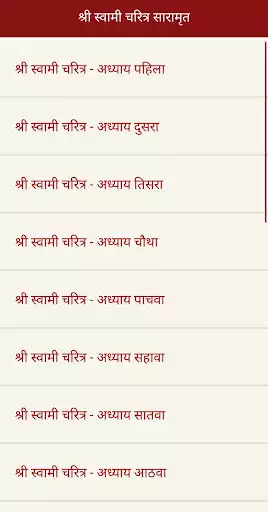 श्री स्वामी चरित्र सारामृत
श्री स्वामी चरित्र - अध्याय पहिला
श्री स्वामी चरित्र - अध्याय दुसरा
श्री स्वामी चरित्र - अध्याय तिसरा
श्री स्वामी चरित्र - अध्याय चौथा
श्री स्वामी चरित्र - अध्याय पाचवा
श्री स्वामी चरित्र - अध्याय सहावा
श्री स्वामी चरित्र - अध्याय सातवा
श्री स्वामी चरित्र - अध्याय आठवा